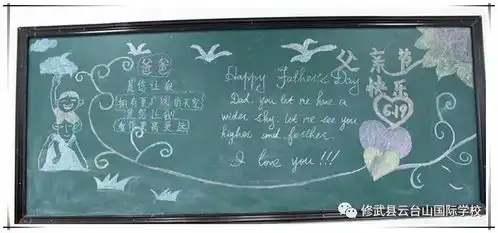 爸爸
是您让我
拥有更广阔的天空
是您让我
看得更高更远
Happy Father's Day
Dad, you let me have a
wider sky, let me see you
higher and farther.
I love you!!!
父亲节
快乐
6.19
修武县云台山国际学校